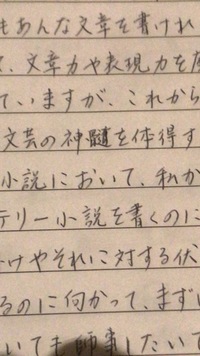 もあんな文章を書けれ
、文章力や表現力を
ていますが、これから
文芸の神髄を体得す
小説において、私か
テリー小説を書くのに
けやそれに対する伏
るのに向かって、まず
いても師事したいて